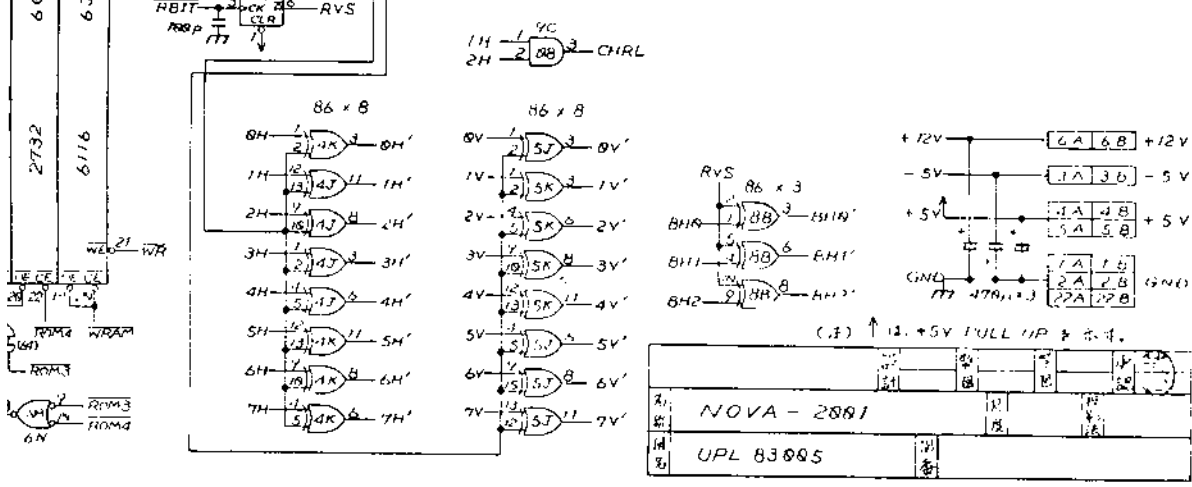 RBIT
CK
CLR
RVS
100P
1
2732
6116
WE 21 WR
OE CE
20 22
ROM4 WRAM
ROM3
ROM3
ROM4
6N
4C
1H 1
2H 2 08 3 CHRL
86 × 8
0H 1 2 4K 3 0H'
1H 12 13 4J 11 1H'
2H 9 10 4J 8 2H'
3H 1 2 4J 3 3H'
4H 4 5 4J 6 4H'
5H 12 13 4K 11 5H'
6H 9 10 4K 8 6H'
7H 4 5 4K 6 7H'
86 × 8
0V 1 2 5J 3 0V'
1V 1 2 5K 3 1V'
2V 4 5 5K 6 2V'
3V 9 10 5K 8 3V'
4V 12 13 5K 11 4V'
5V 5 5J 6 5V'
6V 5J 8 6V'
7V 13 12 5J 11 7V'
RVS
86 × 3
8H0 8B 3 8H0'
8H1 8B 6 8H1'
8H2 8B 8 8H2'
+12V 6A 6B +12V
-5V 3A 3B -5V
+5V 4A 4B +5V
5A 5B
GND 1A 1B GND
2A 2B
22A 22B
470μ×3
(注) ↑ は、+5V PULL UP を示す。
NOVA - 2001
UPL 83005